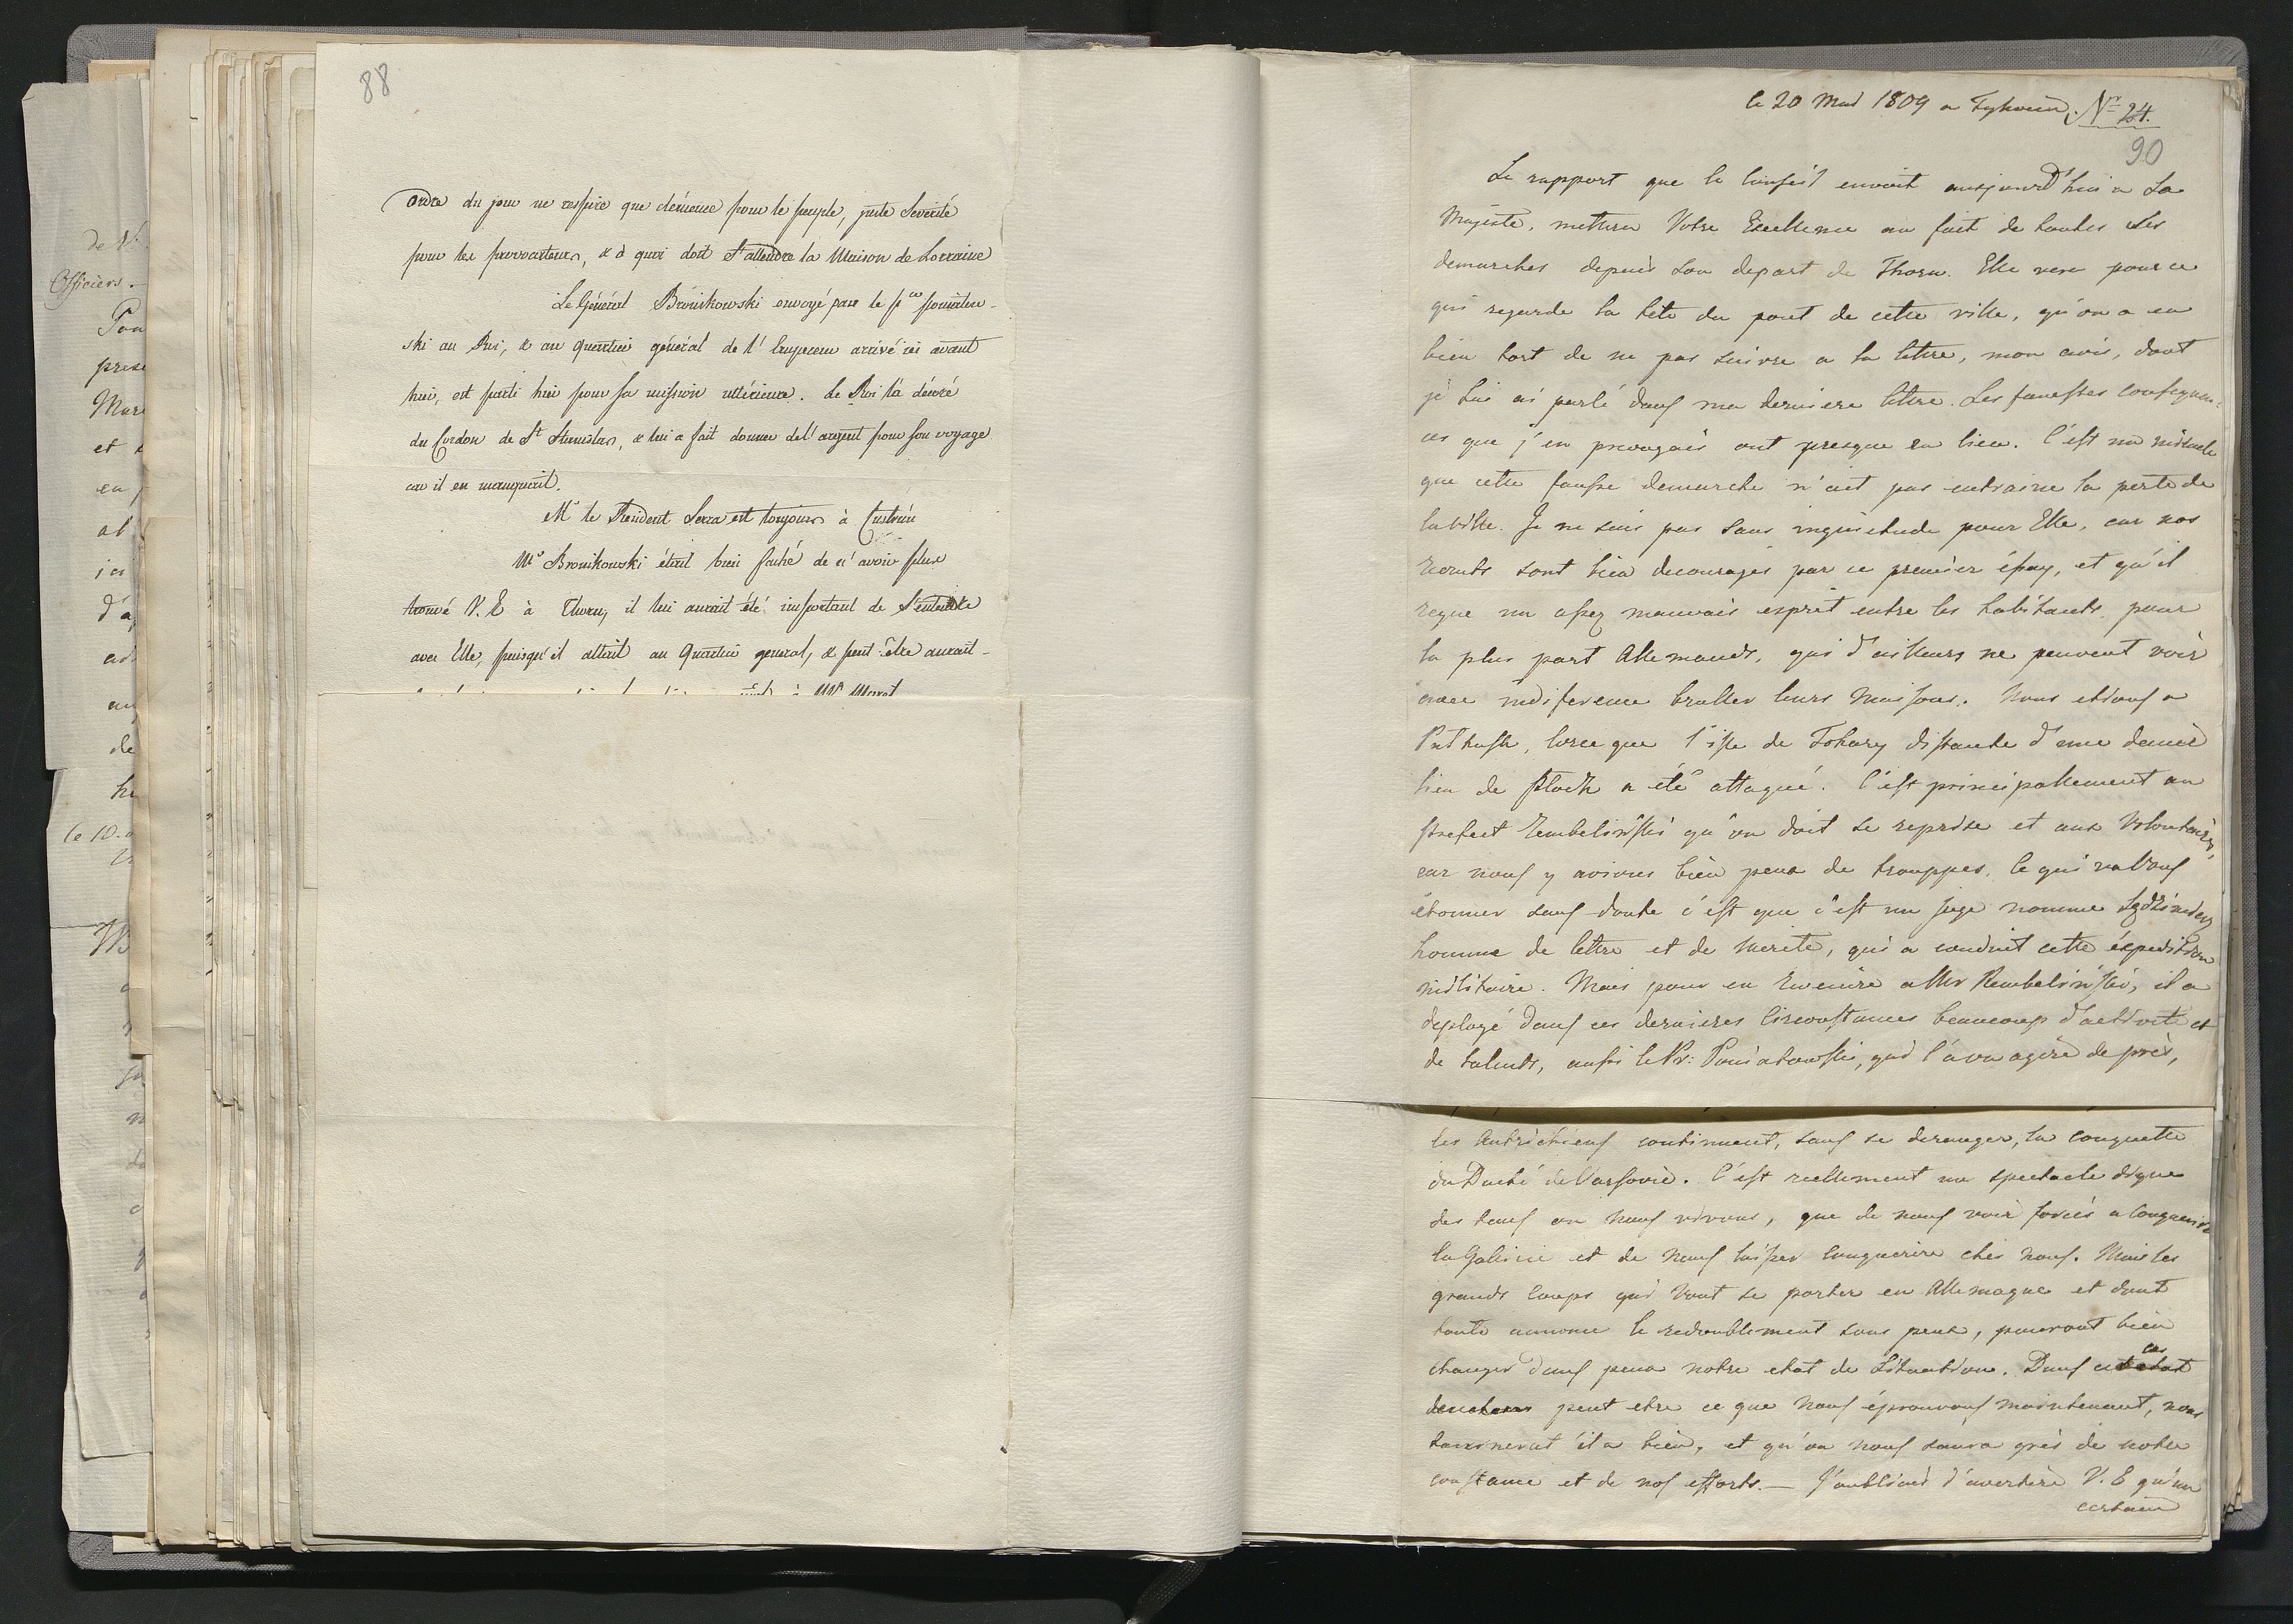 88
ordre du jour ne respire que clémence pour le peuple, juste Severité
pour les provocateurs, & à quoi doit S'attendre la Maison de Lorraine
Le Général Bronikowski envoyé par le p^ce Poniatow-
ski au Roi, & au quartier général de l'Empereur arrivé ici avant
hier, est parti hier pour sa mission ultérieure. Le Roi l'a décoré
du Cordon de S^t Stanislas, & lui a fait donner de l'argent pour son voyage
car il en manquait.
M^r le Resident Serra est toujours à Custrin
M^r Bronikowski était bien faché de n'avoir plus
trouvé V. E à Thorn, il lui aurait été important de S'entendre
avec Elle, puisqu'il allait au Quartier general, & peut-être aurait-
à M^r Maret
de V.
Officiers.-
Pou
prese
Mar
et
en
ici
d'a
de
le 10.
le 20 Mai 1809 a Tykocin. N^r 24.
90
Le rapport que le Conseil envoit aujourd'hui a Sa
Majeste, mettera Votre Excellence au fait de toutes Ses
demarches depuis Son depart de Thorn. Elle vera pour ce
qui regarde la tête du pont de cette ville, qu'on a eu
bien tort de ne pas suivre a la lettre, mon avis, dont
je Lui ai parlé dans ma derniere lettre. Les funestes consequen-
ces que j'en prevoyais ont presque eu lieu. C'est un miracle
que cette fausse demarche n'ait pas entraine la perte de
la ville. Je ne suis pas sans inquietude pour Elle, car nos
recruts sont bien decouragés par ce premier éssay, et qu'il
regne un assez mauvais esprit entre les habitants, pour
la plus part Allemands, qui d'ailleurs ne peuvent voir
avec indiference bruller leurs Maisons. Nous etions a
Pultusk, lorsque l'isle de Tokary distante d'une demie
lieu de Plock a été attaqué. C'est principallement au
Prefect Rembelinski qu'on doit sa reprise et aux Volontaires,
car nous y avions bien peux de trouppes. Ce qui va Vous
étonner sans doute c'est que c'est un juge nomme
homme de lettre et de merite, qui a conduit cette éxpedition
militaire. Mais pour en revenire a M^r Rembelinski, il a
deployé dans ces dernieres Circonstances beaucoup d'activité et
de talents, aussi le Pr: Poniatowski, qui l'a vu agire de près,
les Autrichiens continuent, sans se deranger, la conquette
du Duché de Varsovie. C'est reellement un spectacle digne
des tems ou nous vivons, que de nous voir forcés a Conquerire
la Galicie et de nous laisser Conquerire chés nous. Mais les
grands Coups qui vont se porter en Allemagne et dont
tout annonce le redoublement sous peux, pouront bien
changer dans peux notre etat de Situation. Dans ce cas
peut etre ce que nous éprouvons maintenant, nous
tournerat 'il a bien, et qu'on nous saura grès de notre
constance et de nos efforts.— J'oubliais d'avertire V. E qu'un
certain